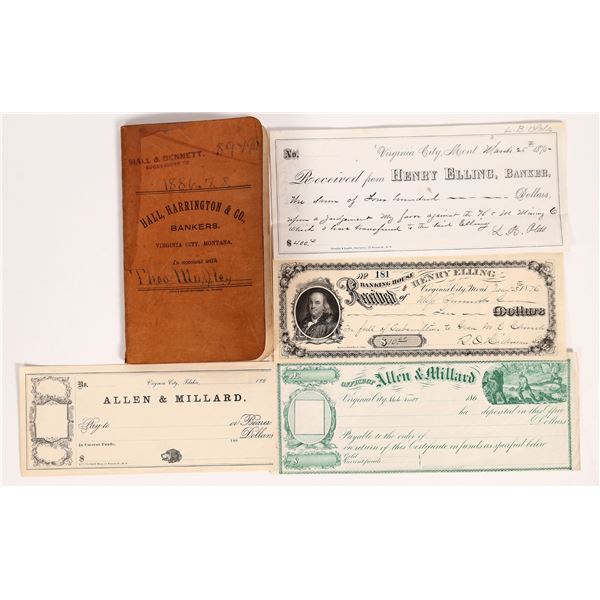 HALL & BENNETT,
SUCCESSORS TO
1886.7.8
HALL, HARRINGTON & CO,
BANKERS.
VIRGINIA CITY, MONTANA.
In account with
Thos Muffley
No. Virginia City, Mont March 25th 1875
Received from HENRY ELLING, BANKER,
The sum of Four hundred Dollars,
upon a Judgement my favor against the
Which I have transferred to the said Elling
$400.00 L. B. Olds
No 181 BANKING HOUSE OF HENRY ELLING
Virginia City, Mont. 1876
Received of
Ten Dollars
In full of Subscription to M. E. Church
$10.00
No. Virginia City, Idaho, 186
ALLEN & MILLARD,
Pay to or Bearer
Dollars
In Current Funds,
$
No. OFFICE OF Allen & Millard
Virginia City, 186
has deposited in this Office
Dollars
Payable to the order of
on return of this Certificate in funds as specified below
Gold
Current funds
$